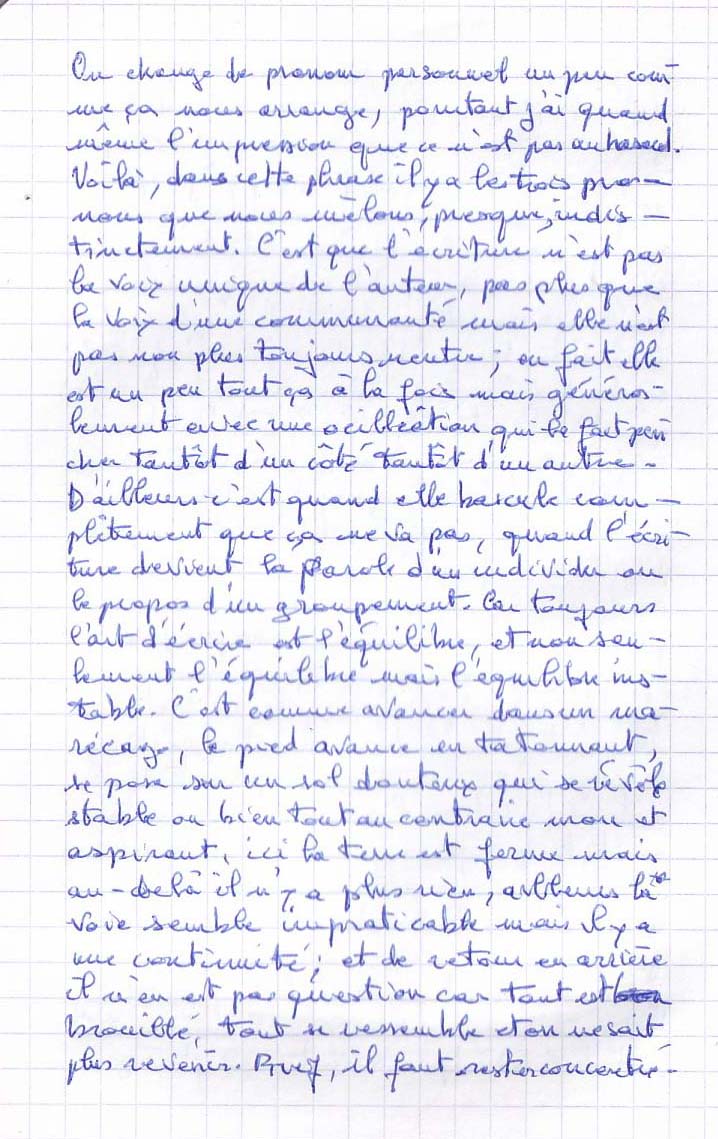 On change de pronom personnel un peu com-
me ça nous arrange, pourtant j'ai quand
même l'impression que ce n'est pas au hasard.
Voilà, dans cette phrase il y a les trois pro-
noms que nous mêlons, presque, indis-
tinctement. C'est que l'écriture n'est pas
la voix unique de l'auteur, pas plus que
la voix d'une communauté mais elle n'est
pas non plus toujours neutre ; en fait elle
est un peu tout ça à la fois mais généra-
lement avec une oscillation qui la fait pen-
cher tantôt d'un côté tantôt d'un autre.
D'ailleurs c'est quand elle bascule com-
plètement que ça ne va pas, quand l'écri-
ture devient la parole d'un individu ou
le propos d'un groupement. Car toujours
l'art d'écrire est l'équilibre, et non seu-
lement l'équilibre mais l'équilibre ins-
table. C'est comme avancer dans un ma-
récage, le pied avance en tatonnant,
se pose sur un sol douteux qui se révèle
stable ou bien tout au contraire mou et
aspirant, ici la terre est ferme mais
au-delà il n'y a plus rien, ailleurs la
voie semble impraticable mais il y a
une continuité ; et de retour en arrière
il n'en est pas question car tout est
brouillé, tout se ressemble et on ne sait
plus revenir. Bref, il faut rester concentré.